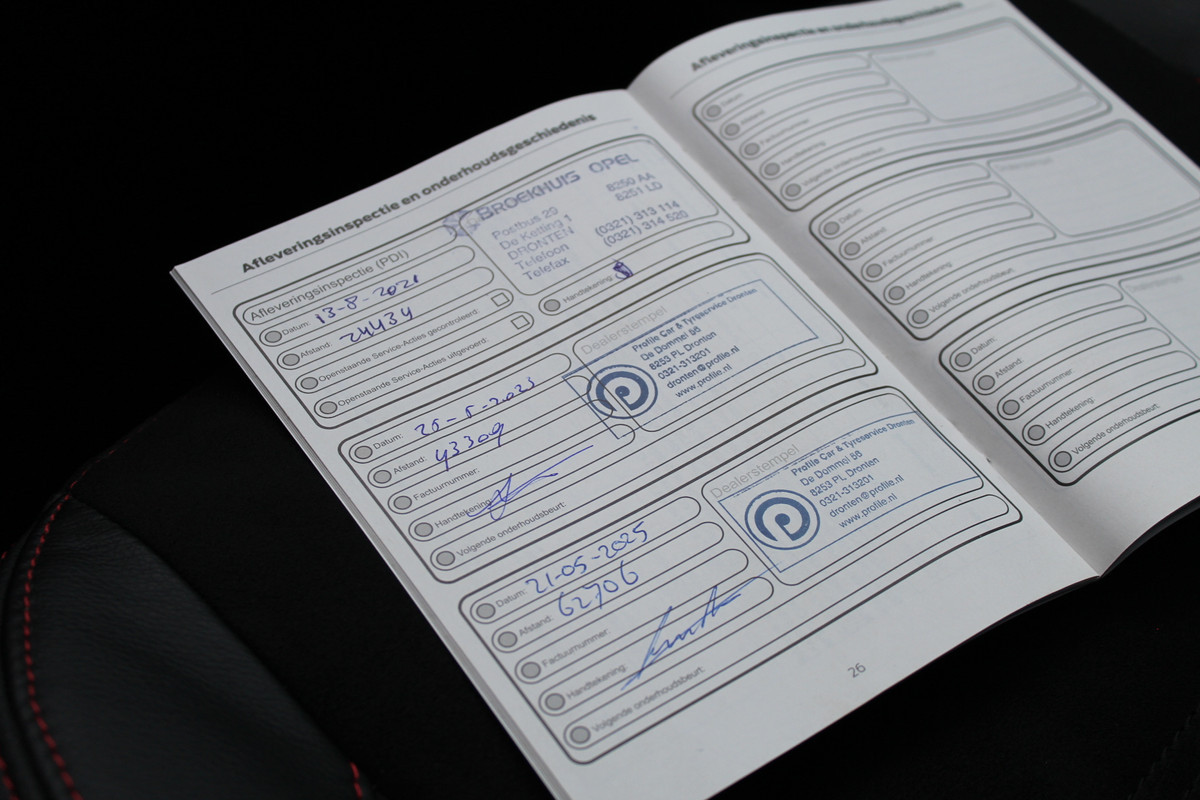 Afleveringsinspectie en onderhoudsgeschiedenis
Afleveringsinspectie (PDI)
Datum: 13-8-2021
Afstand: 24434
Openstaande Service-Acties gecontroleerd:
Openstaande Service-Acties uitgevoerd:
BROEKHUIS OPEL
Postbus 20 8250 AA
De Ketting 1 8251 LD
DRONTEN
Telefoon (0321) 313 114
Telefax (0321) 314 520
Handtekening:
Datum:
Afstand: 43309
Factuurnummer:
Handtekening:
Volgende onderhoudsbeurt:
Dealerstempel
Profile Car & Tyreservice Dronten
De Dommel 56
8253 PL Dronten
0321-313201
dronten@profile.nl
www.profile.nl
Datum: 21-05-2025
Afstand: 62706
Factuurnummer:
Handtekening:
Volgende onderhoudsbeurt:
Dealerstempel
Profile Car & Tyreservice Dronten
De Dommel 56
8253 PL Dronten
0321-313201
dronten@profile.nl
www.profile.nl
26
Afleveringsinspectie en onderhoudsgeschiedenis
Datum:
Afstand:
Factuurnummer:
Handtekening:
Volgende onderhoudsbeurt:
Datum:
Afstand:
Factuurnummer:
Handtekening:
Volgende onderhoudsbeurt:
Datum:
Afstand:
Factuurnummer:
Handtekening:
Volgende onderhoudsbeurt: